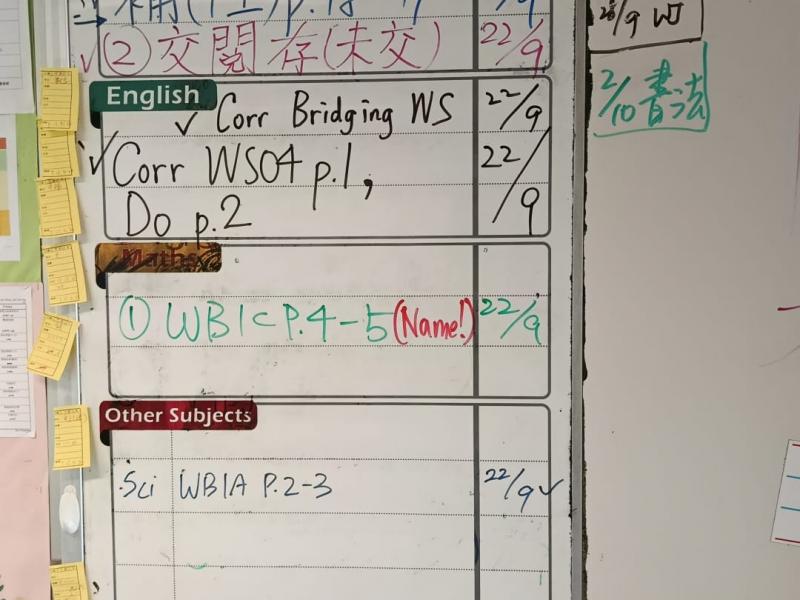 (2) 交閱存(未交) 22/9
English
✓ Corr Bridging WS 22/9
✓ Corr WS04 p.1, 22/9
Do p.2
Maths
① WB1C P.4-5 (Name!) 22/9
Other Subjects
Sci WB1A P.2-3 22/9 ✓
2/10 書法